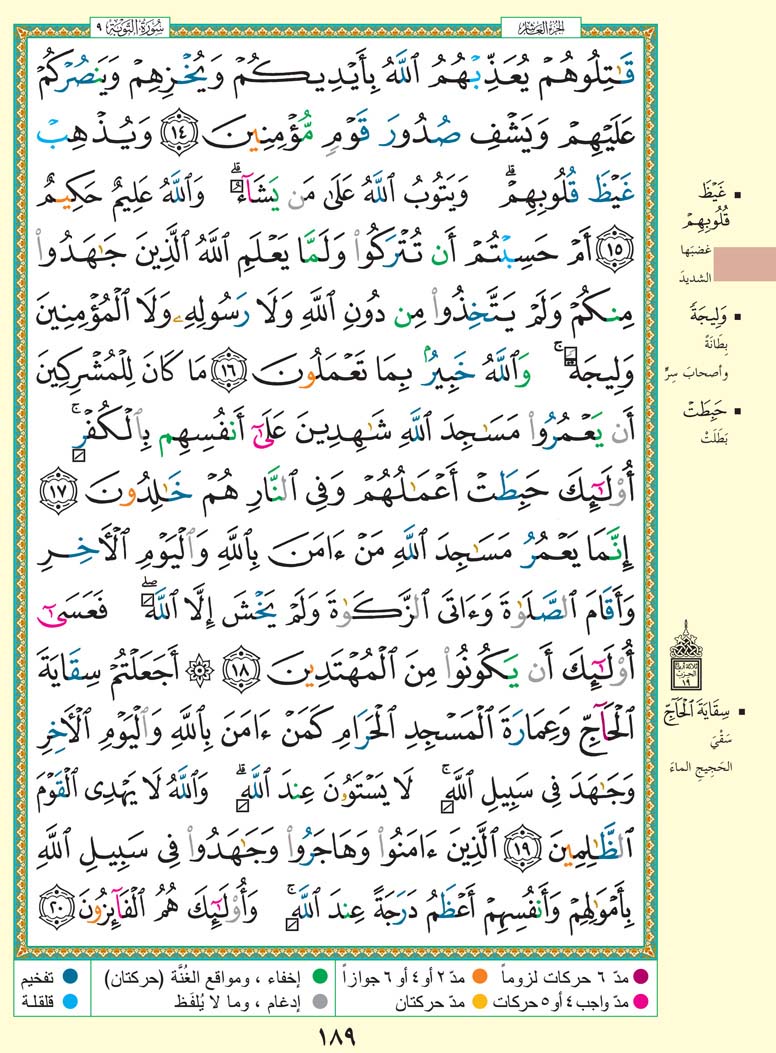 سُورَةُ التَّوْبَةِ ٩
الجُزْءُ العَاشِر
قَـٰتِلُوهُمْ يُعَذِّبْهُمُ ٱللَّهُ بِأَيْدِيكُمْ وَيُخْزِهِمْ وَيَنصُرْكُمْ
عَلَيْهِمْ وَيَشْفِ صُدُورَ قَوْمٍ مُّؤْمِنِينَ ١٤ وَيُذْهِبْ
غَيْظَ قُلُوبِهِمْ ۗ وَيَتُوبُ ٱللَّهُ عَلَىٰ مَن يَشَآءُ ۗ وَٱللَّهُ عَلِيمٌ حَكِيمٌ
١٥ أَمْ حَسِبْتُمْ أَن تُتْرَكُوا۟ وَلَمَّا يَعْلَمِ ٱللَّهُ ٱلَّذِينَ جَـٰهَدُوا۟
مِنكُمْ وَلَمْ يَتَّخِذُوا۟ مِن دُونِ ٱللَّهِ وَلَا رَسُولِهِۦ وَلَا ٱلْمُؤْمِنِينَ
وَلِيجَةً ۚ وَٱللَّهُ خَبِيرٌۢ بِمَا تَعْمَلُونَ ١٦ مَا كَانَ لِلْمُشْرِكِينَ
أَن يَعْمُرُوا۟ مَسَـٰجِدَ ٱللَّهِ شَـٰهِدِينَ عَلَىٰٓ أَنفُسِهِم بِٱلْكُفْرِ ۚ
أُو۟لَـٰٓئِكَ حَبِطَتْ أَعْمَـٰلُهُمْ وَفِى ٱلنَّارِ هُمْ خَـٰلِدُونَ ١٧
إِنَّمَا يَعْمُرُ مَسَـٰجِدَ ٱللَّهِ مَنْ ءَامَنَ بِٱللَّهِ وَٱلْيَوْمِ ٱلْـَٔاخِرِ
وَأَقَامَ ٱلصَّلَوٰةَ وَءَاتَى ٱلزَّكَوٰةَ وَلَمْ يَخْشَ إِلَّا ٱللَّهَ ۖ فَعَسَىٰٓ
أُو۟لَـٰٓئِكَ أَن يَكُونُوا۟ مِنَ ٱلْمُهْتَدِينَ ١٨ ۞ أَجَعَلْتُمْ سِقَايَةَ
ٱلْحَآجِّ وَعِمَارَةَ ٱلْمَسْجِدِ ٱلْحَرَامِ كَمَنْ ءَامَنَ بِٱللَّهِ وَٱلْيَوْمِ ٱلْـَٔاخِرِ
وَجَـٰهَدَ فِى سَبِيلِ ٱللَّهِ ۚ لَا يَسْتَوُۥنَ عِندَ ٱللَّهِ ۗ وَٱللَّهُ لَا يَهْدِى ٱلْقَوْمَ
ٱلظَّـٰلِمِينَ ١٩ ٱلَّذِينَ ءَامَنُوا۟ وَهَاجَرُوا۟ وَجَـٰهَدُوا۟ فِى سَبِيلِ ٱللَّهِ
بِأَمْوَٰلِهِمْ وَأَنفُسِهِمْ أَعْظَمُ دَرَجَةً عِندَ ٱللَّهِ ۚ وَأُو۟لَـٰٓئِكَ هُمُ ٱلْفَآئِزُونَ ٢٠
غَيْظَ
قُلُوبِهِمْ
غضبَها
الشديدَ
وَلِيجَةً
بِطَانَةً
وأصحابَ سِرٍّ
حَبِطَتْ
بَطَلَتْ
ثلاثة أرباع
الحزب
١٩
سِقَايَةَ ٱلْحَآجِّ
سَقْيَ
الحَجِيجِ الماءَ
مدّ ٦ حركات لزوماً
مدّ ٢ أو ٤ أو ٦ جوازاً
إخفاء ، ومواقع الغُنَّة (حركتان)
تفخيم
مدّ واجب ٤ أو ٥ حركات
مدّ حركتان
إدغام ، وما لا يُلفَظ
قلقلة
١٨٩